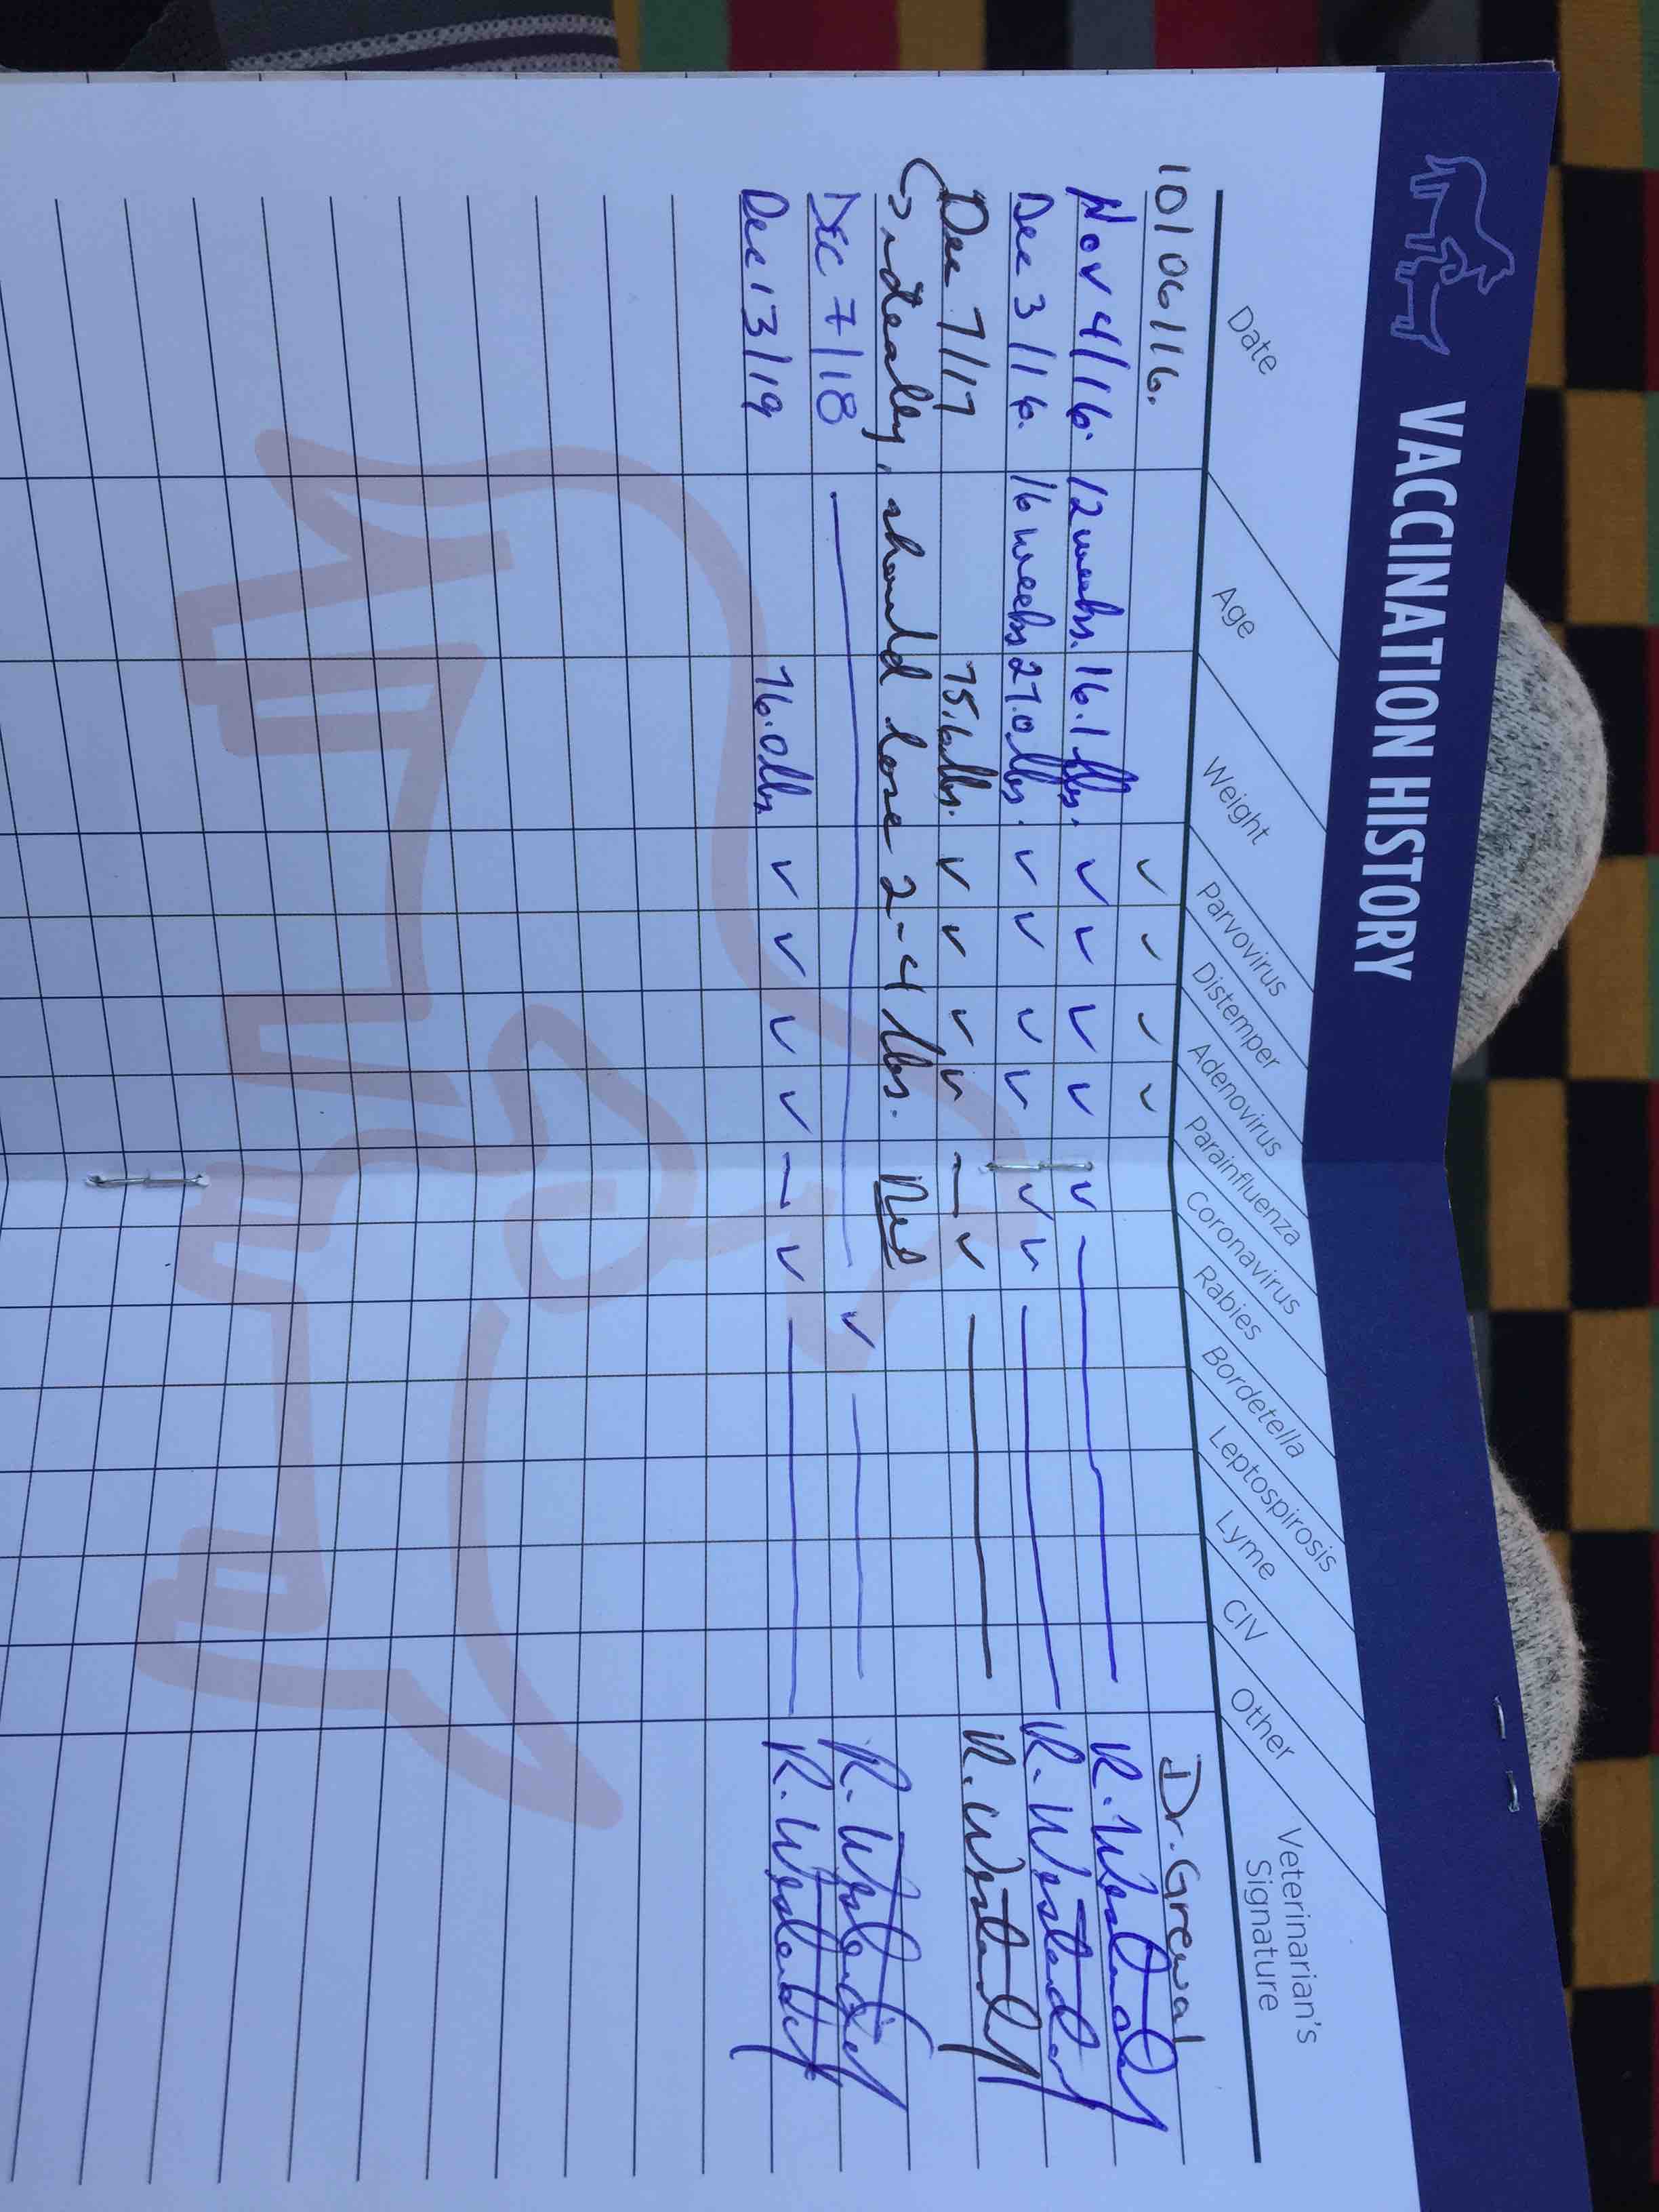 VACCINATION HISTORY
Date Age Weight Parvovirus Distemper Adenovirus Parainfluenza Coronavirus Rabies Bordetella Leptospirosis Lyme CIV Other Veterinarian's Signature
10/06/16. ✓ ✓ ✓ ✓ Dr. Grewal
Nov 4/16. 12 weeks. 16.1 lbs. ✓ ✓ ✓ ✓ ✓ — R.
Dec 3/16. 16 weeks 27.0 lbs. ✓ ✓ ✓ ✓ ✓ ✓ — R.
Dec 7/17 75.6 lbs. ✓ ✓ ✓ ✓ — ✓ — R.
↳ ideally, should lose 2-4 lbs.
DEC 7/18 — ✓ — R.
Dec 13/19 76.0 lbs. ✓ ✓ ✓ ✓ — ✓ — R.